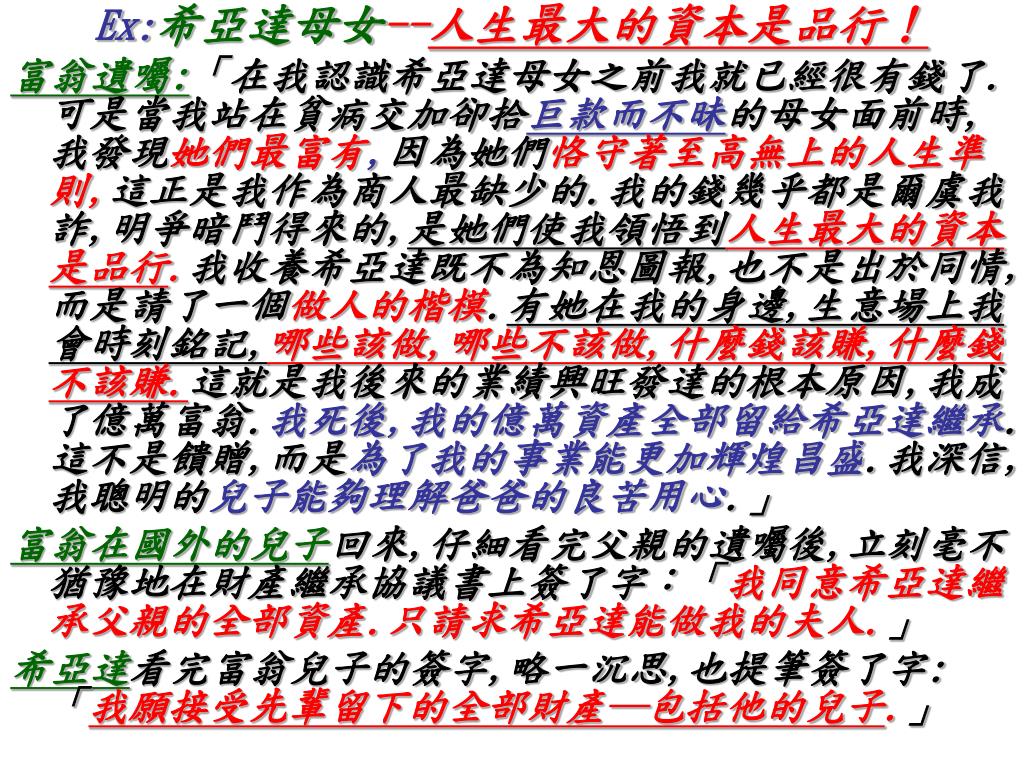 Ex:希亞達母女--人生最大的資本是品行！
富翁遺囑:「在我認識希亞達母女之前我就已經很有錢了.
可是當我站在貧病交加卻拾巨款而不昧的母女面前時,
我發現她們最富有,因為她們恪守著至高無上的人生準
則,這正是我作為商人最缺少的.我的錢幾乎都是爾虞我
詐,明爭暗鬥得來的,是她們使我領悟到人生最大的資本
是品行.我收養希亞達既不為知恩圖報,也不是出於同情,
而是請了一個做人的楷模.有她在我的身邊,生意場上我
會時刻銘記,哪些該做,哪些不該做,什麼錢該賺,什麼錢
不該賺.這就是我後來的業績興旺發達的根本原因,我成
了億萬富翁.我死後,我的億萬資產全部留給希亞達繼承.
這不是饋贈,而是為了我的事業能更加輝煌昌盛.我深信,
我聰明的兒子能夠理解爸爸的良苦用心.」
富翁在國外的兒子回來,仔細看完父親的遺囑後,立刻毫不
猶豫地在財產繼承協議書上簽了字：「我同意希亞達繼
承父親的全部資產.只請求希亞達能做我的夫人.」
希亞達看完富翁兒子的簽字,略一沉思,也提筆簽了字:
「我願接受先輩留下的全部財產—包括他的兒子.」